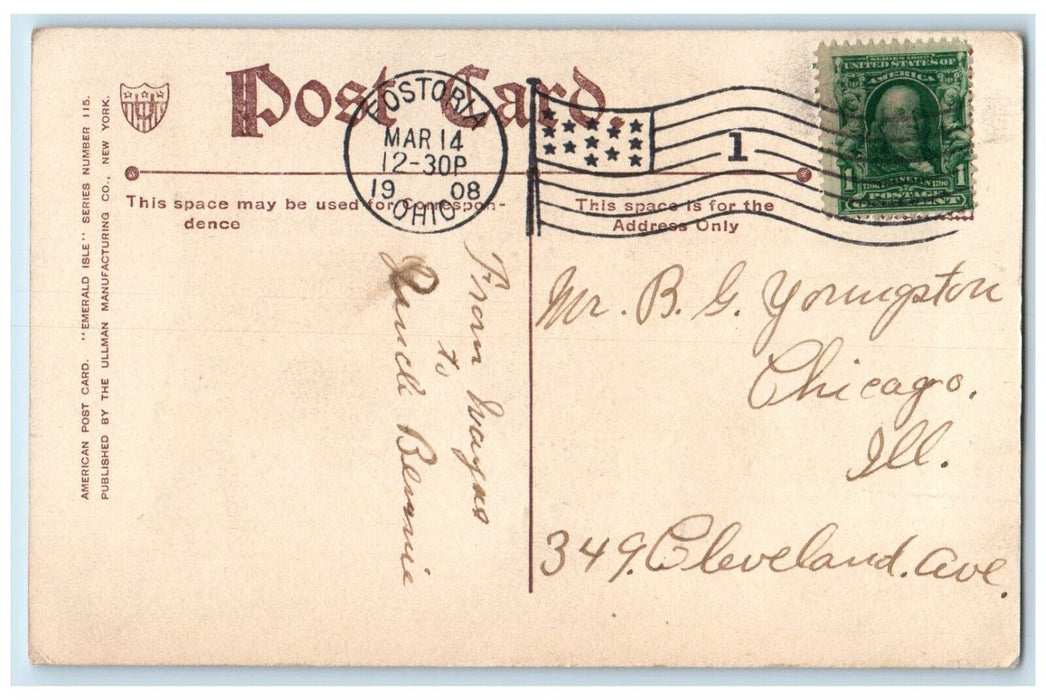 AMERICAN POST CARD. "EMERALD ISLE" SERIES NUMBER 115.
PUBLISHED BY THE ULLMAN MANUFACTURING CO., NEW YORK.
Post Card.
FOSTORIA
MAR 14
12-30P
19 08
OHIO
1
SERIES 1902
UNITED STATES OF
AMERICA
1 FRANKLIN 1
1706 1790
POSTAGE
ONE CENT
This space may be used for Correspon-
dence
This space is for the
Address Only
From Wayne
to
Uncle Bennie
Mr. B. G. Youngston
Chicago.
Ill.
349. Cleveland. Ave.